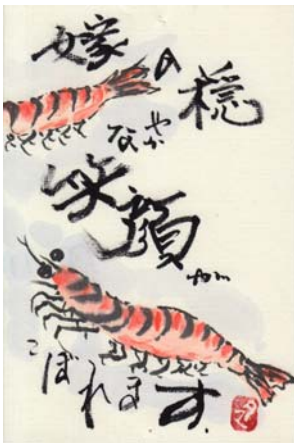 嫁の穏
やかな
笑顔
こぼれます